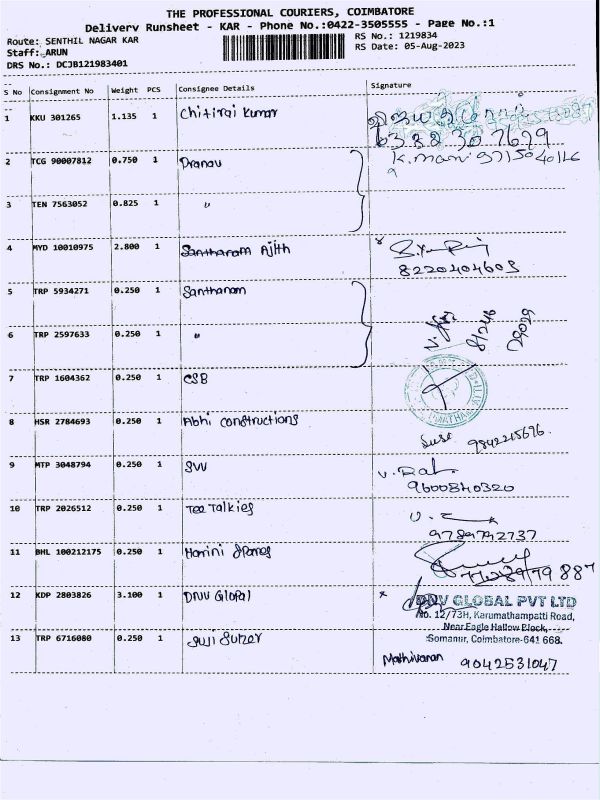 THE PROFESSIONAL COURIERS, COIMBATORE
Delivery Runsheet - KAR - Phone No.:0422-3505555 - Page No.:1
Route: SENTHIL NAGAR KAR
Staff: ARUN
DRS No.: DCJB121983401
RS No.: 1219834
RS Date: 05-Aug-2023
S No Consignment No Weight PCS Consignee Details Signature
1 KKU 301265 1.135 1 Chitirai Kumar
6388307679
2 TCG 90007812 0.750 1 Pranav K. Mani 9715040146
3 TEN 7563052 0.825 1 "
4 MYD 10010975 2.800 1 Santhanam Ajith
8220404603
5 TRP 5934271 0.250 1 Santhanam
6 TRP 2597633 0.250 1 "
7 TRP 1604362 0.250 1 CSB
8 HSR 2784693 0.250 1 Abhi constructions
9842215696
9 MTP 3048794 0.250 1 SVV
9600840320
10 TRP 2026512 0.250 1 Tee Talkies
9789792737
11 BHL 100212175 0.250 1 Harini
12 KDP 2803826 3.100 1 DNV Global x DNV GLOBAL PVT LTD
No. 12/73H, Karumathampatti Road,
Near Eagle Hallow Block,
Somanur, Coimbatore-641 668.
13 TRP 6716080 0.250 1 Suji Sulzer
Mathivanan 9042531047